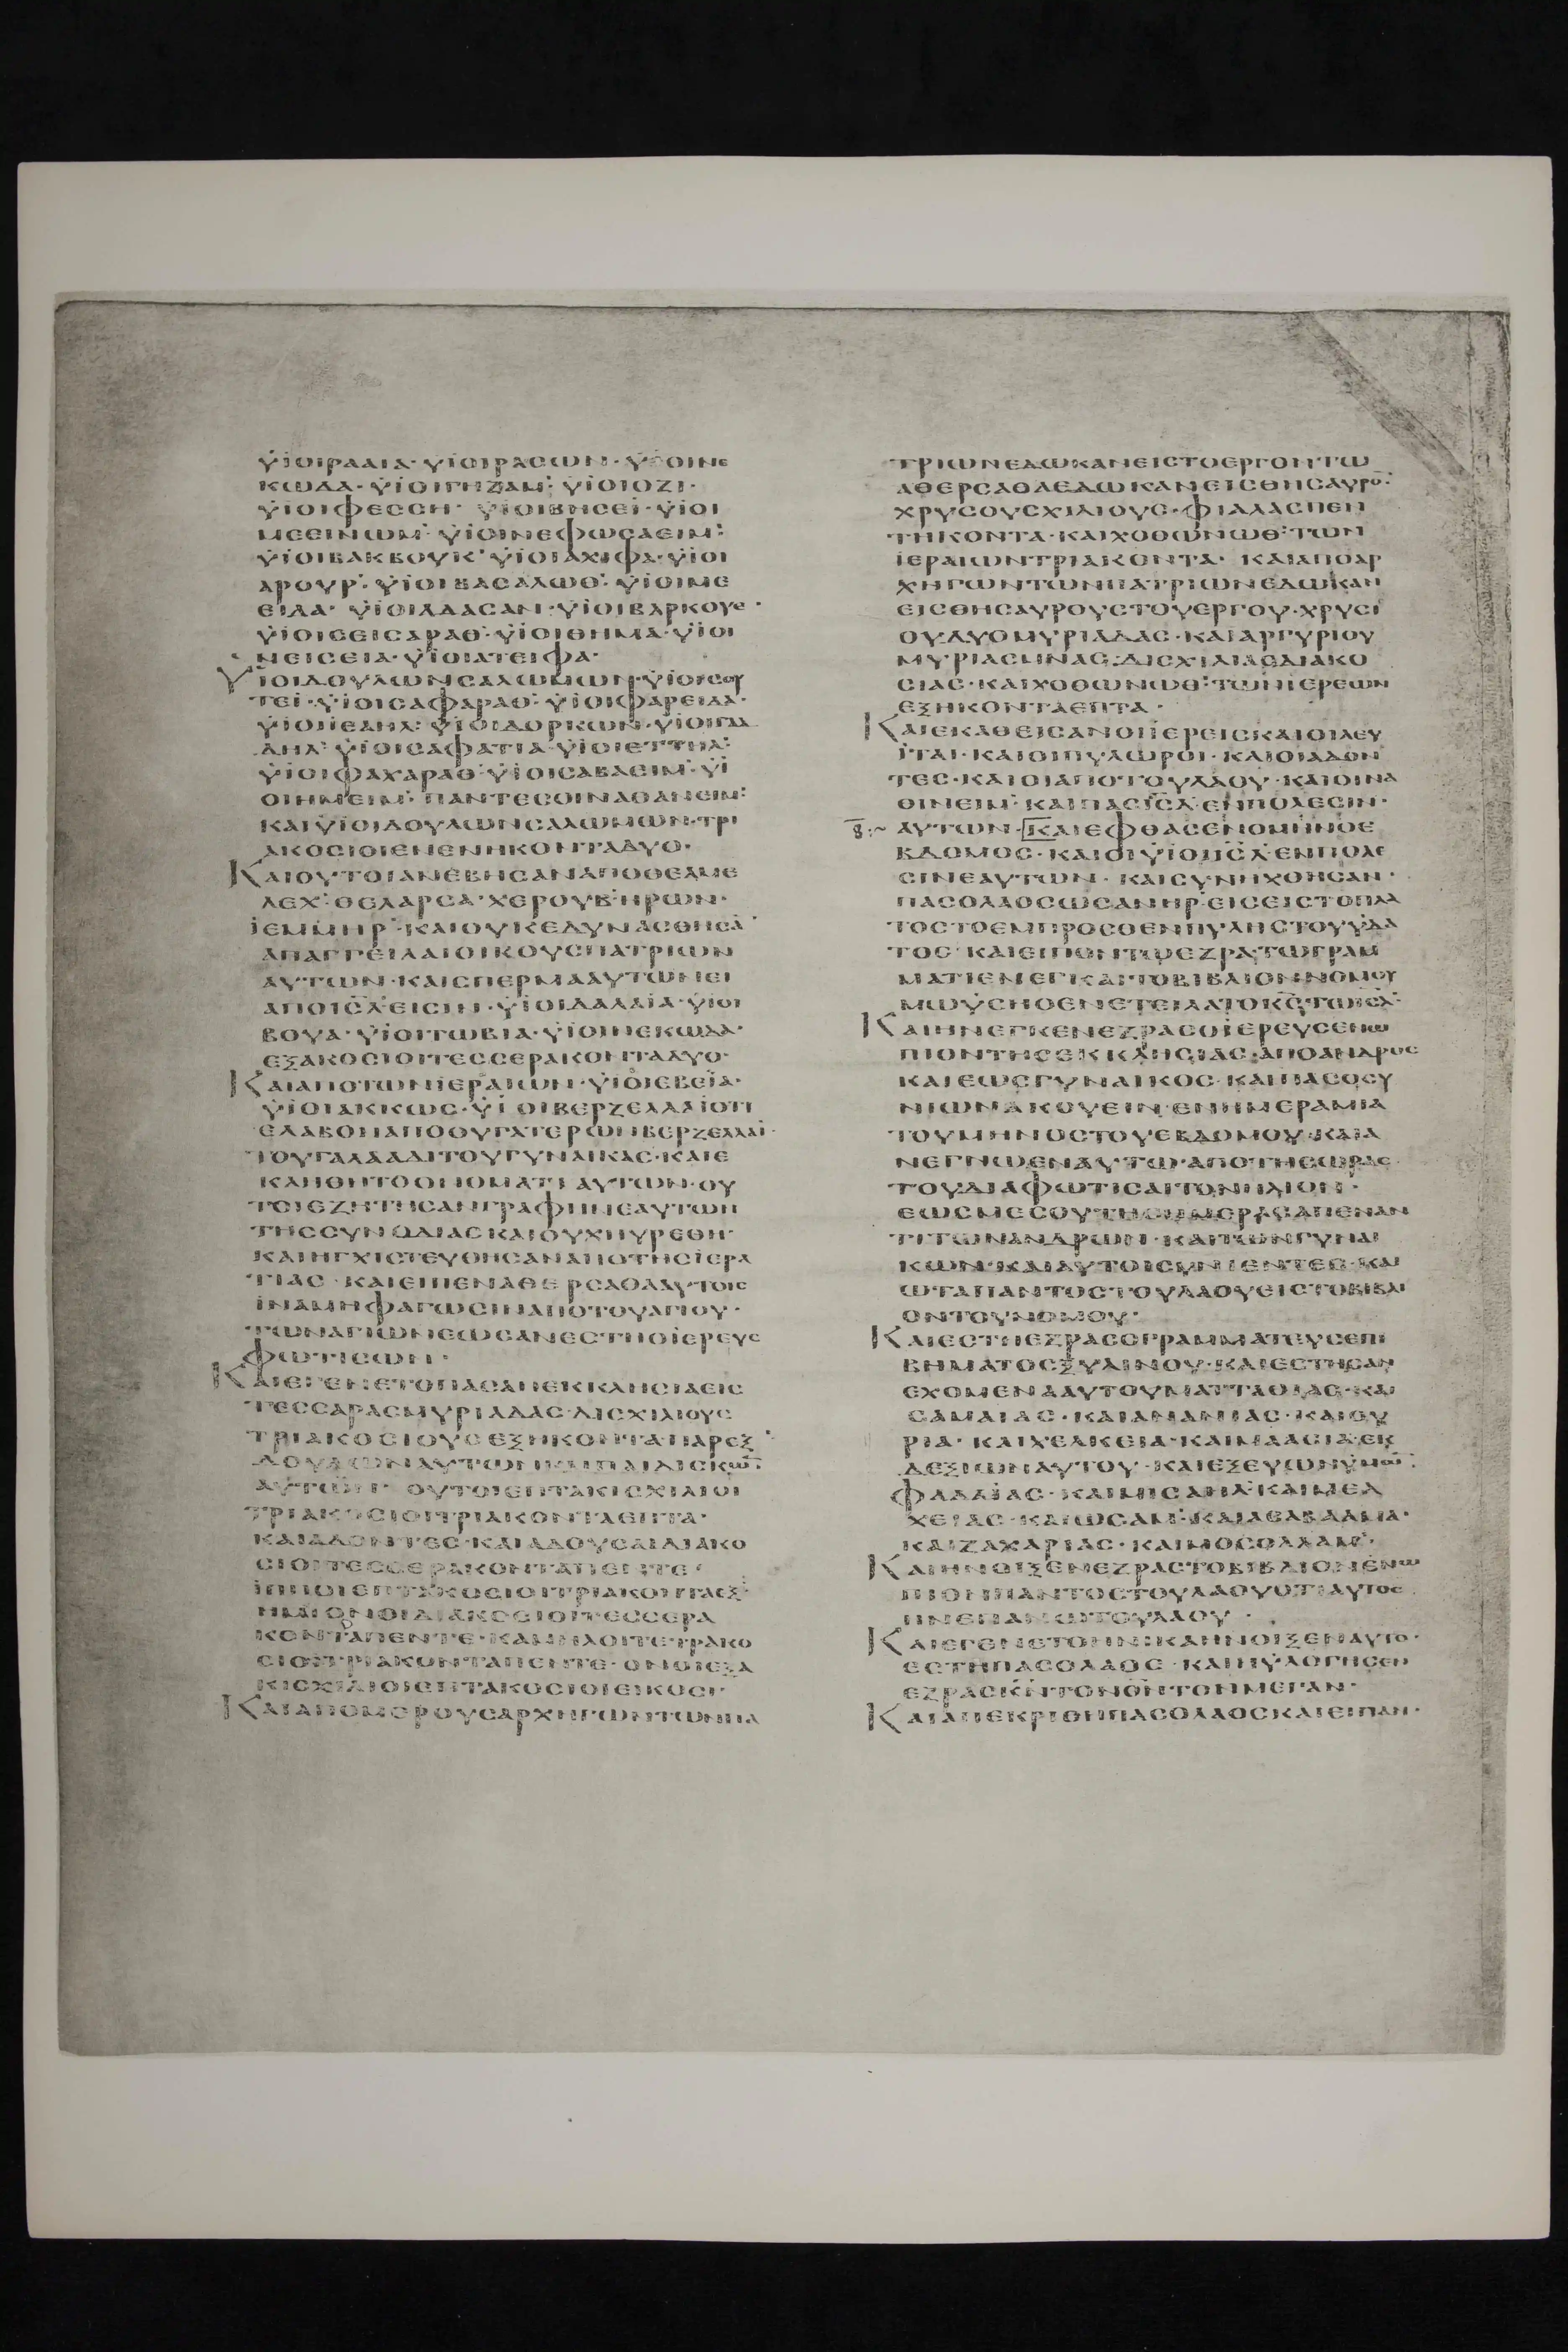 ΥΙΟΙΡΑΑΙΑ·ΥΙΟΙΡΑCΩΝ·ΥΙΟΙΝΕ
ΚΩΔΑ·ΥΙΟΙΓΗΖΑΜ·ΥΙΟΙΟΖΙ·
ΥΙΟΙΦΕCCΗ·ΥΙΟΙΒΗCΕΙ·ΥΙΟΙ
ΜCΕΙΝΩΜ·ΥΙΟΙΝΕΦΩCΑΕΙΜ:
ΥΙΟΙΒΑΚΒΟΥΚ·ΥΙΟΙΑΧΙΦΑ·ΥΙΟΙ
ΑΡΟΥΡ·ΥΙΟΙΒΑCΑΛΩΘ·ΥΙΟΙΜΕ
ΕΙΔΑ·ΥΙΟΙΑΔΑCΑΝ·ΥΙΟΙΒΑΡΚΟΥΕ·
ΥΙΟΙCΕΙCΑΡΑΘ·ΥΙΟΙΘΗΜΑ·ΥΙΟΙ
ΝΕΙCΕΙΑ·ΥΙΟΙΑΤΕΙΦΑ·
ΥΙΟΙΔΟΥΛΩΝCΑΛΩΜΩΝ·ΥΙΟΙCΟΥ
ΤΕΙ·ΥΙΟΙCΑΦΑΡΑΘ·ΥΙΟΙΦΑΡΕΙΔΑ·
ΥΙΟΙΙΕΛΗΛ·ΥΙΟΙΔΟΡΚΩΝ·ΥΙΟΙΓΑΔ
ΔΗΛ·ΥΙΟΙCΑΦΑΤΙΑ·ΥΙΟΙΕΤΤΗΛ:
ΥΙΟΙΦΑΧΑΡΑΘ·ΥΙΟΙCΑΒΑΕΙΜ·ΥΙ
ΟΙΗΜΕΙΜ·ΠΑΝΤΕCΟΙΝΑΘΑΝΕΙΜ:
ΚΑΙΥΙΟΙΔΟΥΛΩΝCΑΛΩΜΩΝ·ΤΡΙ
ΑΚΟCΙΟΙΕΝΕΝΗΚΟΝΤΑΔΥΟ·
ΚΑΙΟΥΤΟΙΑΝΕΒΗCΑΝΑΠΟΘΕΛΜΕ
ΛΕΧ·ΘΕΛΑΡCΑ·ΧΕΡΟΥΒ·ΗΡΩΝ·
ΙΕΜΜΗΡ·ΚΑΙΟΥΚΕΔΥΝΑCΘΗCΑ
ΑΠΑΓΓΕΙΛΑΙΟΙΚΟΥCΠΑΤΡΙΩΝ
ΑΥΤΩΝ·ΚΑΙCΠΕΡΜΑΑΥΤΩΝΕΙ
ΑΠΟΙCΛΕΙCΙΝ·ΥΙΟΙΔΑΛΑΙΑ·ΥΙΟΙ
ΒΟΥΑ·ΥΙΟΙΤΩΒΙΑ·ΥΙΟΙΝΕΚΩΔΑ·
ΕΞΑΚΟCΙΟΙΤΕCCΕΡΑΚΟΝΤΑΔΥΟ·
ΚΑΙΑΠΟΤΩΝΙΕΡΑΙΩΝ·ΥΙΟΙΕΒΕΙΑ·
ΥΙΟΙΑΚΚΩC·ΥΙΟΙΒΕΡΖΕΛΛΑΙΟΤΙ
ΕΛΑΒΟΝΑΠΟΘΥΓΑΤΕΡΩΝΒΕΡΖΕΛΛΑΙ·
ΤΟΥΓΑΛΑΑΔΙΤΟΥΓΥΝΑΙΚΑC·ΚΑΙΕ
ΚΛΗΘΗΤΟΟΝΟΜΑΤΙΑΥΤΩΝ·ΟΥ
ΤΟΙΕΖΗΤΗCΑΝΓΡΑΦΗΝΕΑΥΤΩΝ
ΤΗCCΥΝΟΔΙΑCΚΑΙΟΥΧΗΥΡΕΘΗ·
ΚΑΙΗΓΧΙCΤΕΥΘΗCΑΝΑΠΟΤΗCΙΕΡΑ
ΤΙΑC·ΚΑΙΕΙΠΕΝΑΘΕΡCΑΘΑΑΥΤΟΙC
ΙΝΑΜΗΦΑΓΩCΙΝΑΠΟΤΟΥΑΓΙΟΥ·
ΤΩΝΑΓΙΩΝΕΩCΑΝΕCΤΗΟΙΕΡΕΥC
ΦΩΤΙCΩΝ·
ΚΑΙΕΓΕΝΕΤΟΠΑCΑΗΕΚΚΛΗCΙΑΕΙC
ΤΕCCΑΡΑCΜΥΡΙΑΔΑC·ΔΙCΧΙΛΙΟΥC
ΤΡΙΑΚΟCΙΟΥCΕΞΗΚΟΝΤΑ·ΠΑΡΕΞ
ΔΟΥΛΩΝΑΥΤΩΝΚΑΙΠΑΙΔΙCΚΩ
ΑΥΤΩΝ·ΟΥΤΟΙΕΠΤΑΚΙCΧΙΛΙΟΙ
ΤΡΙΑΚΟCΙΟΙΤΡΙΑΚΟΝΤΑΕΠΤΑ·
ΚΑΙΑΔΟΝΤΕC·ΚΑΙΑΔΟΥCΑΙΔΙΑΚΟ
CΙΟΙΤΕCCΕΡΑΚΟΝΤΑΠΕΝΤΕ·
ΙΠΠΟΙΕΠΤΑΚΟCΙΟΙΤΡΙΑΚΟΝΤΑΕΞ·
ΗΜΙΟΝΟΙΔΙΑΚΟCΙΟΙΤΕCCΕΡΑ
ΚΟΝΤΑΠΕΝΤΕ·ΚΑΜΗΛΟΙΤΕΤΡΑΚΟ
CΙΟΙΤΡΙΑΚΟΝΤΑΠΕΝΤΕ·ΟΝΟΙΕΞΑ
ΚΙCΧΙΛΙΟΙΕΠΤΑΚΟCΙΟΙΕΙΚΟCΙ·
ΚΑΙΑΠΟΜΕΡΟΥCΑΡΧΗΓΩΝΤΩΝΠΑ
ΤΡΙΩΝΕΔΩΚΑΝΕΙCΤΟΕΡΓΟΝΤΩ
ΑΘΕΡCΑΘΑΕΔΩΚΑΝΕΙCΘΗCΑΥΡΟ·
ΧΡΥCΟΥCΧΙΛΙΟΥC·ΦΙΑΛΑCΠΕΝ
ΤΗΚΟΝΤΑ·ΚΑΙΧΟΘΩΝΩΘ·ΤΩΝ
ΙΕΡΑΙΩΝΤΡΙΑΚΟΝΤΑ·ΚΑΙΑΠΟΑΡ
ΧΗΓΩΝΤΩΝΠΑΤΡΙΩΝΕΔΩΚΑΝ
ΕΙCΘΗCΑΥΡΟΥCΤΟΥΕΡΓΟΥ·ΧΡΥCΙ
ΟΥΔΥΟΜΥΡΙΑΔΑC·ΚΑΙΑΡΓΥΡΙΟΥ
ΜΥΡΙΑCΜΝΑC·ΔΙCΧΙΛΙΑCΔΙΑΚΟ
CΙΑC·ΚΑΙΧΟΘΩΝΩΘ·ΤΩΝΙΕΡΕΩΝ
ΕΞΗΚΟΝΤΑΕΠΤΑ·
ΚΑΙΕΚΑΘΕΙCΑΝΟΙΙΕΡΕΙCΚΑΙΟΙΛΕΥ
ΙΤΑΙ·ΚΑΙΟΙΠΥΛΩΡΟΙ·ΚΑΙΟΙΑΔΟΝ
ΤΕC·ΚΑΙΟΙΑΠΟΤΟΥΛΑΟΥ·ΚΑΙΟΙΝΑ
ΘΙΝΕΙΜ·ΚΑΙΠΑCΙCΛΕΝΠΟΛΕCΙΝ·
Β:~ ΑΥΤΩΝ·ΚΑΙΕΦΘΑCΕΝΟΜΗΝΟΕ
ΒΔΟΜΟC·ΚΑΙΟΙΥΙΟΙΙCΛΕΝΠΟΛΕ
CΙΝΕΑΥΤΩΝ·ΚΑΙCΥΝΗΧΘΗCΑΝ·
ΠΑCΟΛΑΟCΩCΑΝΗΡΕΙCΕΙCΤΟΠΛΑ
ΤΟCΤΟΕΜΠΡΟCΘΕΝΠΥΛΗCΤΟΥΥΔΑ
ΤΟC·ΚΑΙΕΙΠΟΝΤΩΕΖΡΑΤΩΓΡΑΜ
ΜΑΤΙΕΝΕΓΚΑΙΤΟΒΙΒΛΙΟΝΝΟΜΟΥ
ΜΩΥCΗΟΕΝΕΤΕΙΛΑΤΟΚCΤΩΙCΛ·
ΚΑΙΗΝΕΓΚΕΝΕΖΡΑCΟΙΕΡΕΥCΕΝΩ
ΠΙΟΝΤΗCΕΚΚΛΗCΙΑC·ΑΠΟΑΝΔΡΟC
ΚΑΙΕΩCΓΥΝΑΙΚΟC·ΚΑΙΠΑCΟCΥ
ΝΙΩΝΑΚΟΥΕΙΝ·ΕΝΗΜΕΡΑΜΙΑ
ΤΟΥΜΗΝΟCΤΟΥΕΒΔΟΜΟΥ·ΚΑΙΑ
ΝΕΓΝΩΕΝΑΥΤΩ·ΑΠΟΤΗCΩΡΑC
ΤΟΥΔΙΑΦΩΤΙCΑΙΤΟΝΗΛΙΟΝ·
ΕΩCΜΕCΟΥΤΗCΗΜΕΡΑCΑΠΕΝΑΝ
ΤΙΤΩΝΑΝΔΡΩΝ·ΚΑΙΤΩΝΓΥΝΑΙ
ΚΩΝ·ΚΑΙΑΥΤΟΙCΥΝΙΕΝΤΕC·ΚΑΙ
ΩΤΑΠΑΝΤΟCΤΟΥΛΑΟΥΕΙCΤΟΒΙΒΛΙ
ΟΝΤΟΥΝΟΜΟΥ·
ΚΑΙΕCΤΗΕΖΡΑCΟΓΡΑΜΜΑΤΕΥCΕΠΙ
ΒΗΜΑΤΟCΞΥΛΙΝΟΥ·ΚΑΙΕCΤΗCΑΝ
ΕΧΟΜΕΝΑΑΥΤΟΥΜΑΤΤΑΘΙΑC·ΚΑΙ
CΑΜΑΙΑC·ΚΑΙΑΝΑΝΙΑC·ΚΑΙΟΥ
ΡΙΑ·ΚΑΙΧΕΛΚΕΙΑ·ΚΑΙΜΑΑCΙΑ·ΕΚ
ΔΕΞΙΩΝΑΥΤΟΥ·ΚΑΙΕΞΕΥΩΝΥΜΩ·
ΦΑΔΑΙΑC·ΚΑΙΜΙCΑΗΛ·ΚΑΙΜΕΛ
ΧΕΙΑC·ΚΑΙΩCΑΜ·ΚΑΙΑΒΑΑΜΑ·
ΚΑΙΖΑΧΑΡΙΑC·ΚΑΙΜΟCΟΛΛΑΜ·
ΚΑΙΗΝΟΙΞΕΝΕΖΡΑCΤΟΒΙΒΛΙΟΝΕΝΩ
ΠΙΟΝΠΑΝΤΟCΤΟΥΛΑΟΥΟΤΙΑΥΤΟC
ΗΝΕΠΑΝΩΤΟΥΛΑΟΥ·
ΚΑΙΕΓΕΝΕΤΟΗΝΙΚΑΗΝΟΙΞΕΝΑΥΤΟ·
ΕCΤΗΠΑCΟΛΑΟC·ΚΑΙΗΥΛΟΓΗCΕΝ
ΕΖΡΑCΚΝΤΟΝΘΝΤΟΝΜΕΓΑΝ·
ΚΑΙΑΠΕΚΡΙΘΗΠΑCΟΛΑΟCΚΑΙΕΙΠΑΝ·